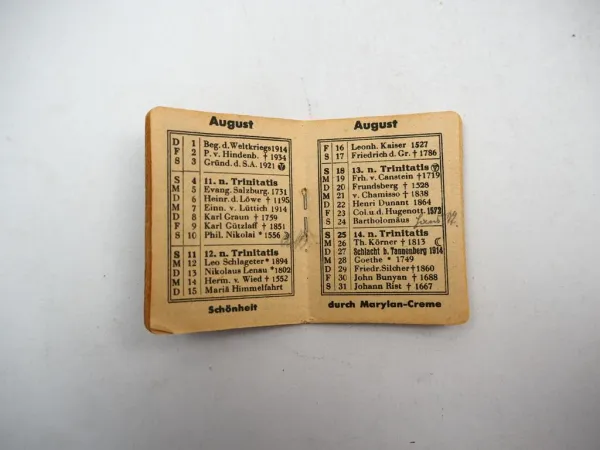 August
D 1 Beg. d. Weltkriegs 1914
F 2 P. v. Hindenb. † 1934
S 3 Gründ. d. S.A. 1921
S 4 11. n. Trinitatis
M 5 Evang. Salzburg. 1731
D 6 Heinr. d. Löwe † 1195
M 7 Einn. v. Lüttich 1914
D 8 Karl Graun † 1759
F 9 Karl Gützlaff † 1851
S 10 Phil. Nikolai * 1556
S 11 12. n. Trinitatis
M 12 Leo Schlageter * 1894
D 13 Nikolaus Lenau * 1802
M 14 Herm. v. Wied † 1552
D 15 Mariä Himmelfahrt
Schönheit
August
F 16 Leonh. Kaiser 1527
S 17 Friedrich d. Gr. † 1786
S 18 13. n. Trinitatis
M 19 Frh. v. Canstein † 1719
D 20 Frundsberg † 1528
M 21 v. Chamisso † 1838
D 22 Henri Dunant 1864
F 23 Col. u. d. Hugenott. 1572
S 24 Bartholomäus
S 25 14. n. Trinitatis
M 26 Th. Körner † 1813
D 27 Schlacht b. Tannenberg 1914
M 28 Goethe * 1749
D 29 Friedr. Silcher † 1860
F 30 John Bunyan † 1688
S 31 Johann Rist † 1667
durch Marylan-Creme